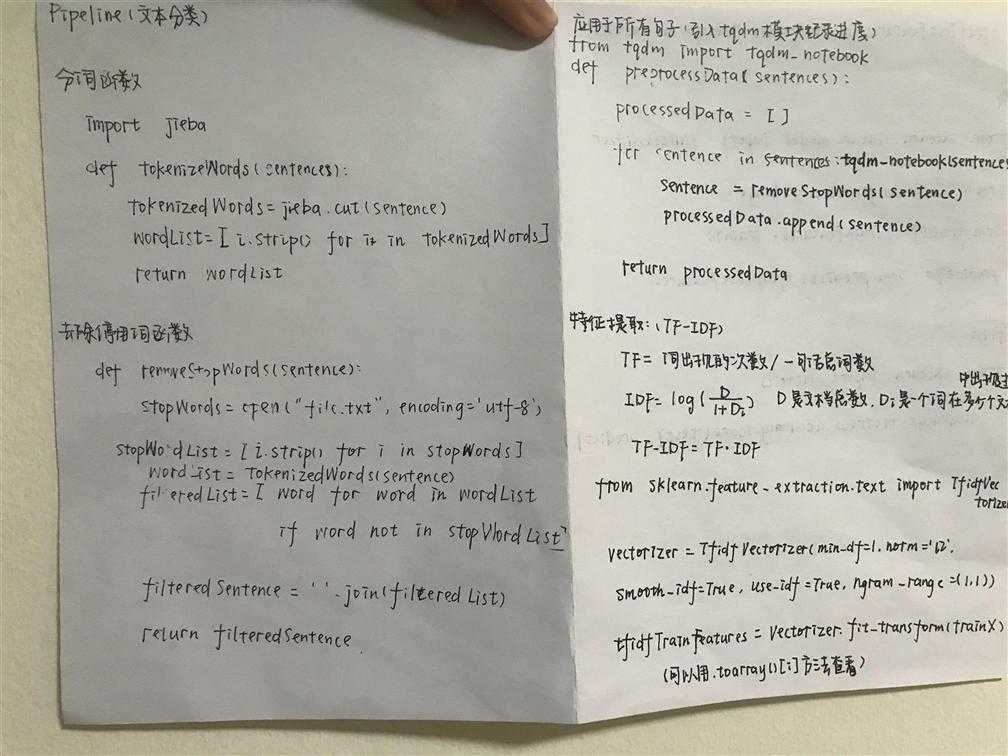 Pipeline (文本分类)
分词函数
import jieba
def tokenizeWords(sentences):
tokenizedWords = jieba.cut(sentence)
wordList = [ i.strip() for i in tokenizedWords]
return wordList
去除停用词函数
def removeStopWords(sentence):
stopWords = open("file.txt", encoding='utf-8')
stopWordList = [ i.strip() for i in stopWords]
wordList = TokenizedWords(sentence)
filteredList = [ word for word in wordList
if word not in stopWordList]
filteredSentence = ' '.join(filteredList)
return filteredSentence
应用于所有句子(引入tqdm模块纪录进度)
from tqdm import tqdm_notebook
def preprocessData(sentences):
processedData = []
for sentence in sentences:tqdm_notebook(sentences
sentence = removeStopWords(sentence)
processedData.append(sentence)
return processedData
特征提取:(TF-IDF)
TF = 词出现的次数/一句话总词数
IDF = log(D/1+Di) D是文档总数, Di是一个词在多少个文
中出现过
TF-IDF = TF·IDF
from sklearn.feature_extraction.text import TfidfVec
torizer
vectorizer = TfidfVectorizer(min_df=1, norm='l2',
smooth_idf=True, use_idf=True, ngram_range=(1,1))
tfidfTrainFeatures = vectorizer.fit_transform(trainX)
(可以用.toarray()[i]方法查看)